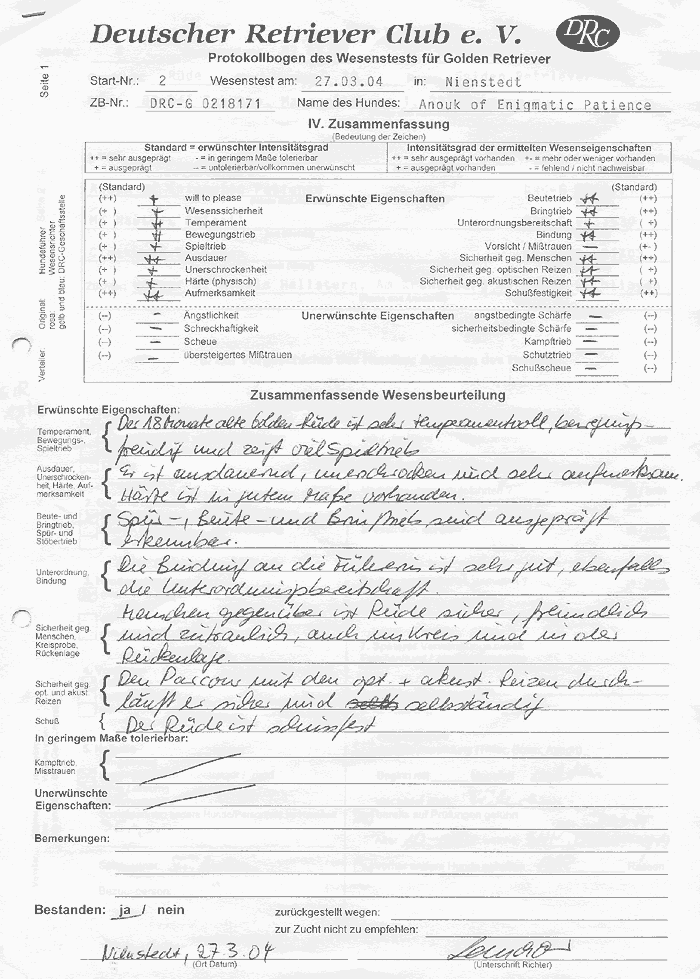 Deutscher Retriever Club e. V.
DRC
Protokollbogen des Wesenstests für Golden Retriever
Seite 1
Start-Nr.: 2 Wesenstest am: 27.03.04 in: Nienstedt
ZB-Nr.: DRC-G 0218171 Name des Hundes: Anouk of Enigmatic Patience
IV. Zusammenfassung
(Bedeutung der Zeichen)
Standard = erwünschter Intensitätsgrad Intensitätsgrad der ermittelten Wesenseigenschaften
++ = sehr ausgeprägt - = in geringem Maße tolerierbar ++ = sehr ausgeprägt vorhanden +- = mehr oder weniger vorhanden
+ = ausgeprägt -- = untolerierbar/vollkommen unerwünscht + = ausgeprägt vorhanden - = fehlend / nicht nachweisbar
(Standard) (Standard)
(++) + will to please Erwünschte Eigenschaften Beutetrieb ++ (++)
(+ ) + Wesenssicherheit Bringtrieb ++ (++)
(+ ) ++ Temperament Unterordnungsbereitschaft + (+ )
(+ ) ++ Bewegungstrieb Bindung ++ (++)
(+ ) + Spieltrieb Vorsicht / Mißtrauen − (+-)
(++) ++ Ausdauer Sicherheit geg. Menschen ++ (++)
(+ ) + Unerschrockenheit Sicherheit geg. optischen Reizen ++ ( +)
(+ ) + Härte (physisch) Sicherheit geg. akustischen Reizen ++ ( +)
(++) ++ Aufmerksamkeit Schußfestigkeit ++ (++)
(--) − Ängstlichkeit Unerwünschte Eigenschaften angstbedingte Schärfe − (--)
(--) − Schreckhaftigkeit sicherheitsbedingte Schärfe − (--)
(--) − Scheue Kampftrieb − (--)
(--) − übersteigertes Mißtrauen Schutztrieb − (--)
Schußscheue − (--)
Verteiler: Original: Hundeführer
rosa: Wesensrichter
gelb und blau: DRC-Geschäftsstelle
Zusammenfassende Wesensbeurteilung
Erwünschte Eigenschaften:
Temperament, Bewegungs-, Spieltrieb
Der 18 Monate alte Golden-Rüde ist sehr temperamentvoll, bewegungs-
freudig und zeigt viel Spieltrieb
Ausdauer, Unerschrockenheit, Härte, Aufmerksamkeit
Er ist ausdauernd, unerschrocken und sehr aufmerksam.
Härte ist in gutem Maße vorhanden.
Beute- und Bringtrieb, Spür- und Stöbertrieb
Spür-, Beute- und Bringtrieb sind ausgeprägt
erkennbar.
Unterordnung, Bindung
Die Bindung an die Führerin ist sehr gut, ebenfalls
die Unterordnungsbereitschaft.
Sicherheit geg Menschen, Kreisprobe, Rückenlage
Menschen gegenüber ist Rüde sicher, freundlich
und zutraulich, auch im Kreis und in der
Rückenlage.
Sicherheit geg opt. und akust. Reizen
Den Parcour mit den opt. + akust. Reizen durch-
läuft er sicher und selbständig
Schuß
Der Rüde ist schussfest
In geringem Maße tolerierbar:
Kampftrieb, Misstrauen
Unerwünschte
Eigenschaften:
Bemerkungen:
Bestanden: ja / nein zurückgestellt wegen:
zur Zucht nicht zu empfehlen:
Nienstedt, 27.3.04
(Ort Datum) (Unterschrift Richter)